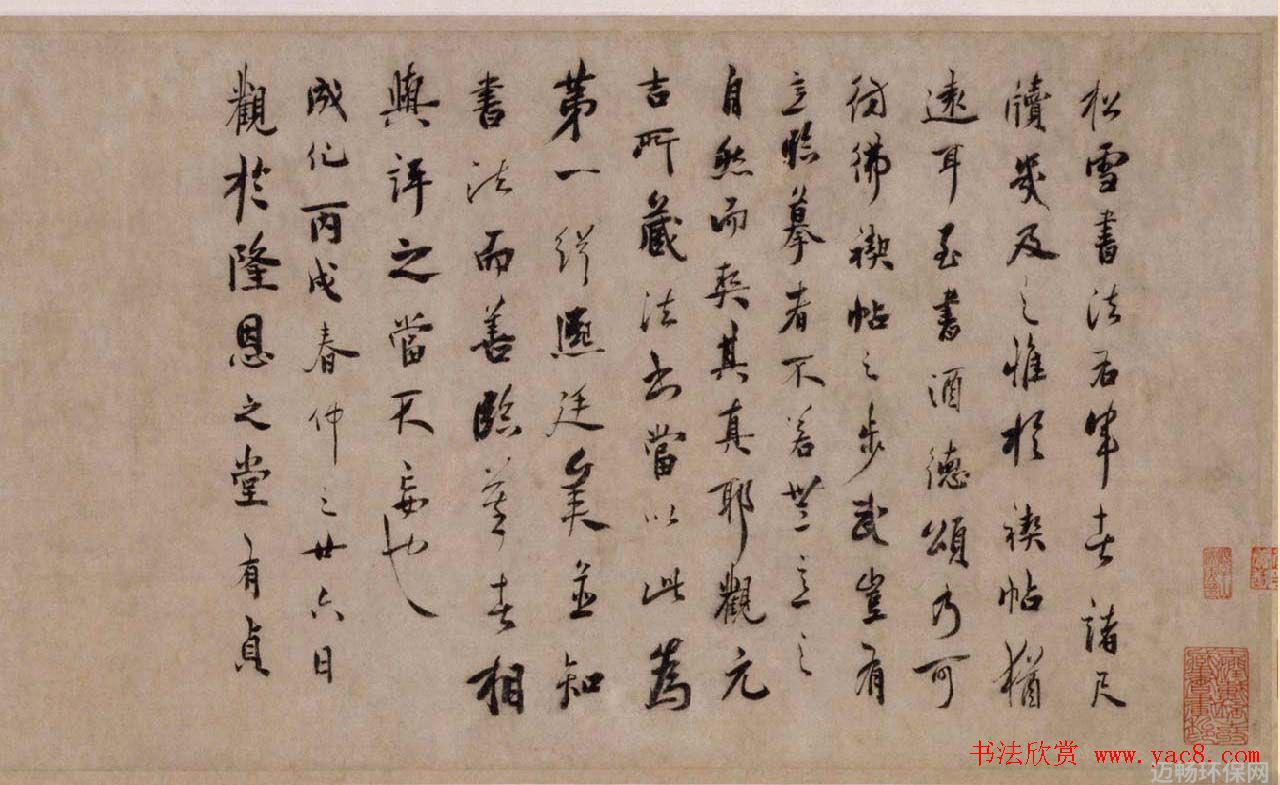 松雪書法右軍者諸尺
牘幾及之惟於禊帖猶
遠耳至書酒德頌乃可
彷彿禊帖之步武豈有
意臨摹者不若無意之
自然而契其真耶觀元
吉所藏法書當以此為
第一縡熙廷美並知
書法而善臨摹者相
與評之當不妄也
成化丙戌春仲之廿六日
觀於隆恩之堂有貞
书法欣赏 www.yac8.com
迈畅环保网